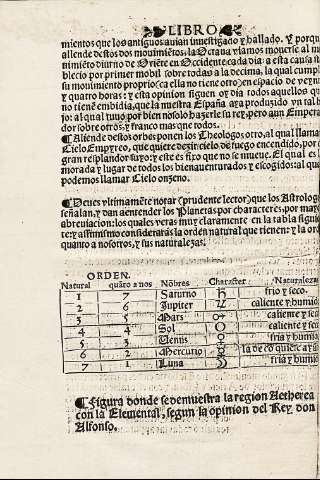 LIBRO
mientos que los antiguos auian inuestigado y hallado. Y porqu
allende destos dos mouimiẽtos, la Octaua viamos mouerse al mo
nimiẽto diurno de Oriẽte en Occidente cada dia: a esta causa
blecio por primer mobil sobre todas a la decima, la qual cumpl
su mouimiento proprio (ca ella no tiene otro) en espacio de veynt
y quatro horas: y esta opinion siguen oy dia todos aquellos qu
no tienẽ embidia, que la nuestra España aya produzido vn tal
jo: al qual tuuo por bien no solo hazerle su rey, pero aun Empera
dor sobre otros, y franco mas que todos.
¶ Allende destos orbes ponen los Theologos otro, al qual llama
Cielo Empyreo, que quiere dezir cielo de fuego encendido, por
gran resplandor suyo: y este es fixo que no se mueue. El qual es
morada y lugar de todos los bienauenturados y escogidos: al que
podemos llamar Cielo onzeno.
¶ Deues vltimamẽte notar (prudente lector) que los Astrolog
señalan, y dan a entender los Planetas por characteres, por
abreuiacion: los quales veras muy claramente en la tabla siguiẽ
te: y assimismo considerarás la orden natural que tienen: y la
quanto a nosotros, y sus naturalezas.
ORDEN.
Natural quãto a nos Nõbres Character Naturalezas
1 7 Saturno ♄ frio y seco
2 6 Jupiter ♃ caliente y humido
3 5 Mars ♂ caliente y seco
4 4 Sol ☉ caliente y seco
5 3 Uenus ♀ fria y humida
6 2 Mercurio ☿ la de cõ quiẽ
7 1 Luna ☽ fria y humida
¶ Figura donde se demuestra la region Aetherea
con la Elemental, segun la opinion del Rey don
Alfonso.